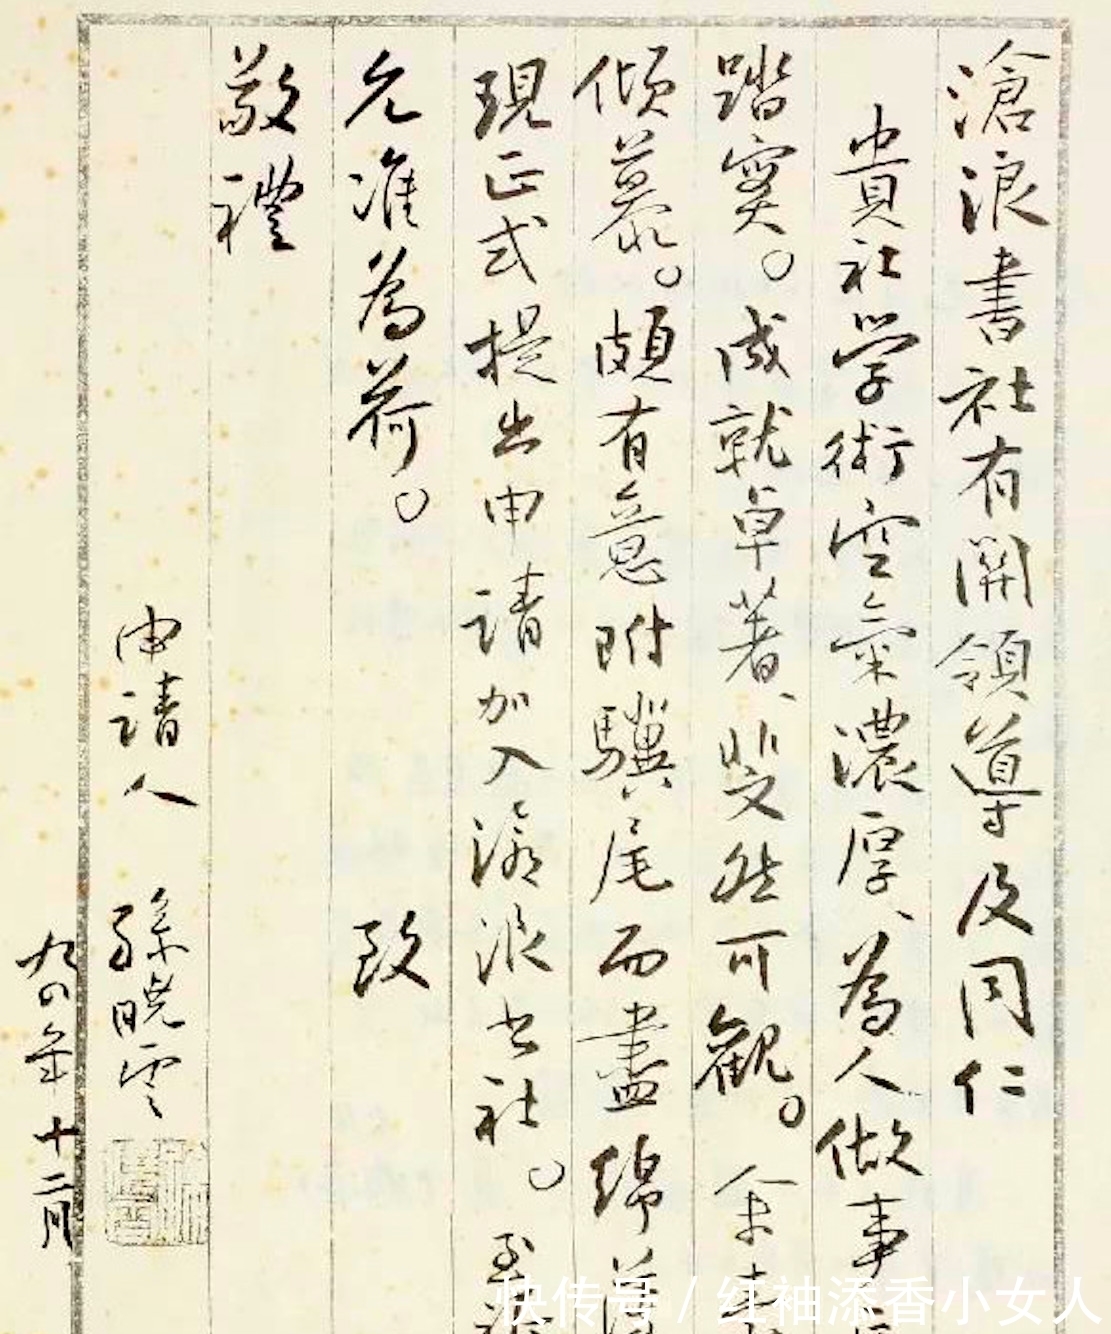 滄浪書社有關領導及同仁
貴社學術空氣濃厚、為人做事
踏實。成就卓著、斐然可觀。余
傾慕。頗有意附驥尾而盡綿薄
現正式提出申請加入滄浪书社。
允准為荷。 致
敬禮
申請人 孫曉雲
九四年十二月
快传号 / 红袖添香小女人